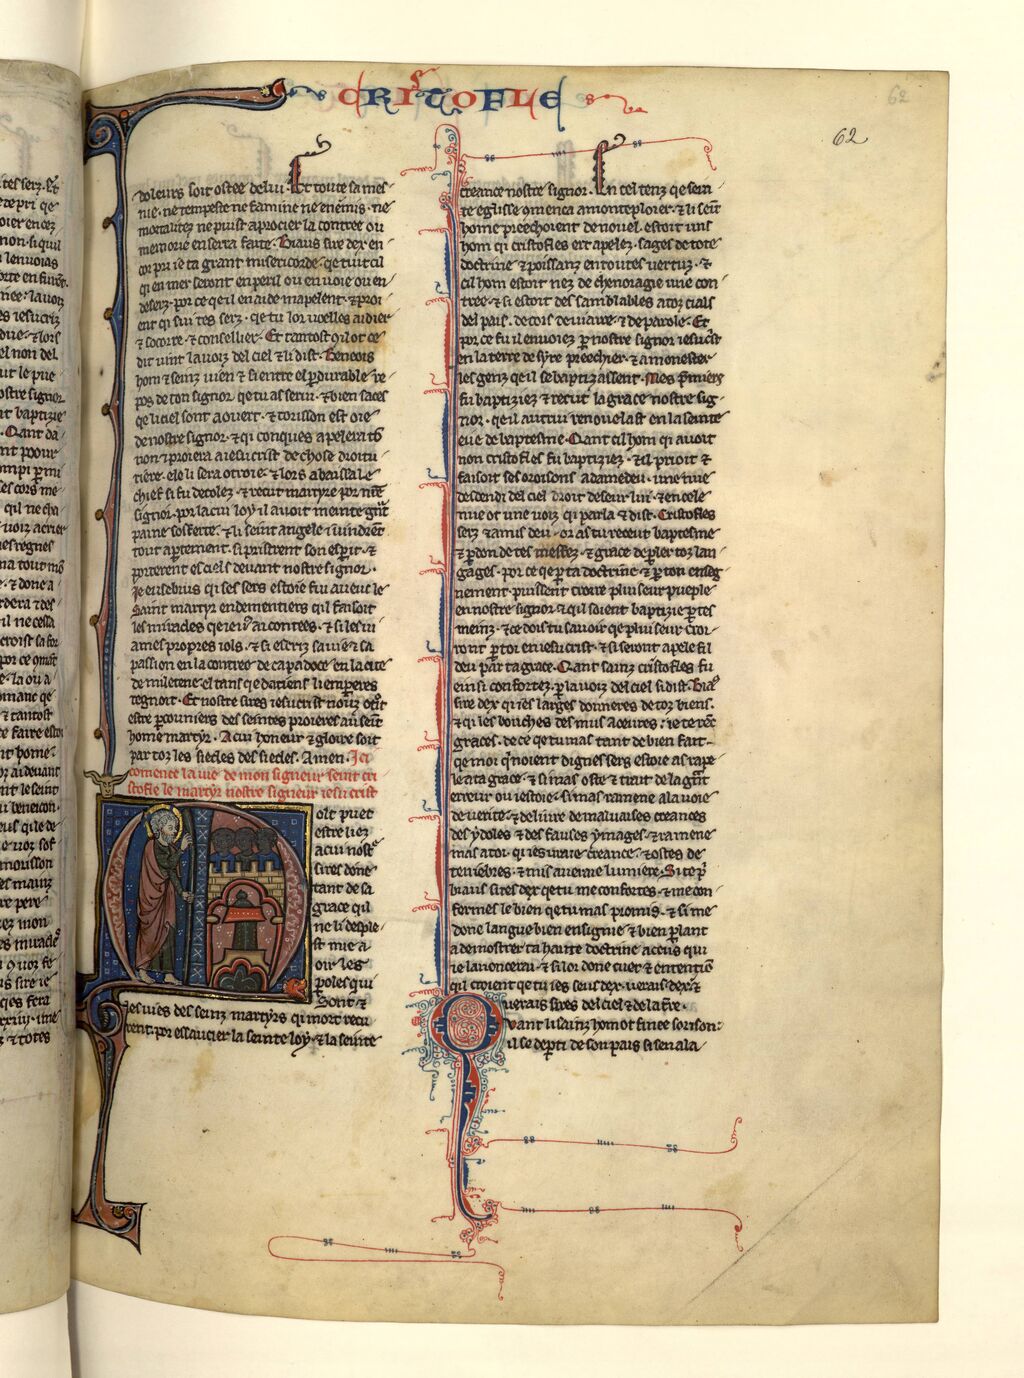 CRISTOFLE
62
62
doleurs soit ostee de lui. Et toute sa mes
nie. ne tempeste ne famine ne enemis. ne
mortalitez ne puist aprocier la contree ou
memorie en sera faite. Biaus sire dex en
cor pri ie ta grant misericorde. qe tuit cil
qi en mer seront en peril ou en voie ou en
deserz. por ce qe il en aide mapelent. & proi
ent qi sui tes serz. qe tu lor voelles aidier
& socorre. & conseillier. Et tantost qil ot ce
dit vint la uoiz del ciel & li dist. Beneois
hom & seinz uien & si entre el pdurable re
pos de ton signor qe tu as serui. & bien saces
qe li ciel sont aouert. & torison est oie
de nostre signor. & qi conqes apelera tō
non & proiera a iesucrist de chose droitu
riere. ele li sera otroie. & lors abaissa le
chief si fu decolez. & recut martyre por nr̄e
signor. por la cui loy il auoit meinte gn̄t
paine sosferte. & li seint angele i uindrēt
tout aptement. si pristrent son esperit. &
porterent es ciels deuant nostre signor.
Je eusebius qi ses sers estoie fui auec le
Saint martyr endementiers qil faisoit
les miracles qe ie u9 ai contees. & si les ui
a mes propres iols. & si escriz sa uie & sa
passion en la contree de capadoce en la cite
de miletene. el tans qe daciens li emperes
regnoit. Et nostre sires iesucrist nouz otit
estre pcouniers des seintes proieres au seīt
home martyr. A cui honeur & gloire soit
par toz les siecles des siecles. Amen. Ici
comence la uie de mon signeur seint cri
stofle le martyr nostre signeur iesu crist
olt puet
estre liez
a cui nostē
sires done
tant de sa
grace qil
ne li desple
st mie a
oir les
poles qui
Sont. &
les uies des seinz martyrs qi mort recu
rent. por essaucier la seinte loy. & la seinte
creance nostre signor. En cel tenz qe sein
te eglisse qmenca a monteploier. & li seīt
home preechoient de nouel. estoit uns
hom qi cristofles ert apelez. sages de tote
doctrine & poissanz en toutes uertuz. &
cil hom estoit nez de chenoragie une con
tree. & si estoit des samblables a toz cials
del pais. de cors de uiaire. & de parole. Et
por ce fu il enuoiez p nostre signor iesucrist
en la terre de syre preechier. & amonester
les genz qe il se baptizassent. Mes pmiers
fu baptiziez & recut la grace nostre sig
nor. qe il autrui renouelast en la seinte
eue de baptesme. Qant cil hom qi auoit
non cristofles fu baptiziez. & il prioit &
faisoit ses oroisons a damedeu. une nue
descendi del ciel droit deseur lui. & en cele
nue ot une uoiz qi parla & dist. Cristofles
serz & amis deu. or as tu receut baptesme
& pdon de tes messez. & grace de pler toz lan
gages. por ce qe p ta doctrine. & p ton enseg
nement. puissent croire pluiseur pueple
en nostre signor. & qil soient baptizie p tes
meinz. & ce dois tu sauoir qe pluiseur cror
ront p tor en iesucrist. & si seront apele fil
deu par ta grace. Qant sainz cristofles fu
einsi confortez. p la uoiz del ciel. si dist. Biaz
sire dex qi ies larges donneres de toz biens.
& qi les bouches des mus aoeures. ie te rent
graces. de ce qe tu mas tant de bien fait.
qe moi qi noient dignes sers estoie as rape
le a ta grace. & si mas oste & trait de la gn̄t
erreur ou iestoie. si mas ramene a la uoie
de uerite. & deliure de mauuaises creances
des ydoles & des fauses ymages. & ramene
mas a toi. qi ies uraie creance. & ostes de
tenebres. & mis a ueraie lumiere. Si te pri
biaus sires dex qe tu me confortes. & me con
fermes le bien qe tu mas promis. & si me
done langue bien ensignie & bien plant
a demostrer ta haute doctrine a ceus qui
ie lanoncerai. & si lor done cuer & ententiō
qil croient qe tu ies seus dex. uerais dex. &
uerais sires del ciel & de la tre.
Qvant li sainz hom ot finee sorison:
il se dep̄ti de son pais si sen ala